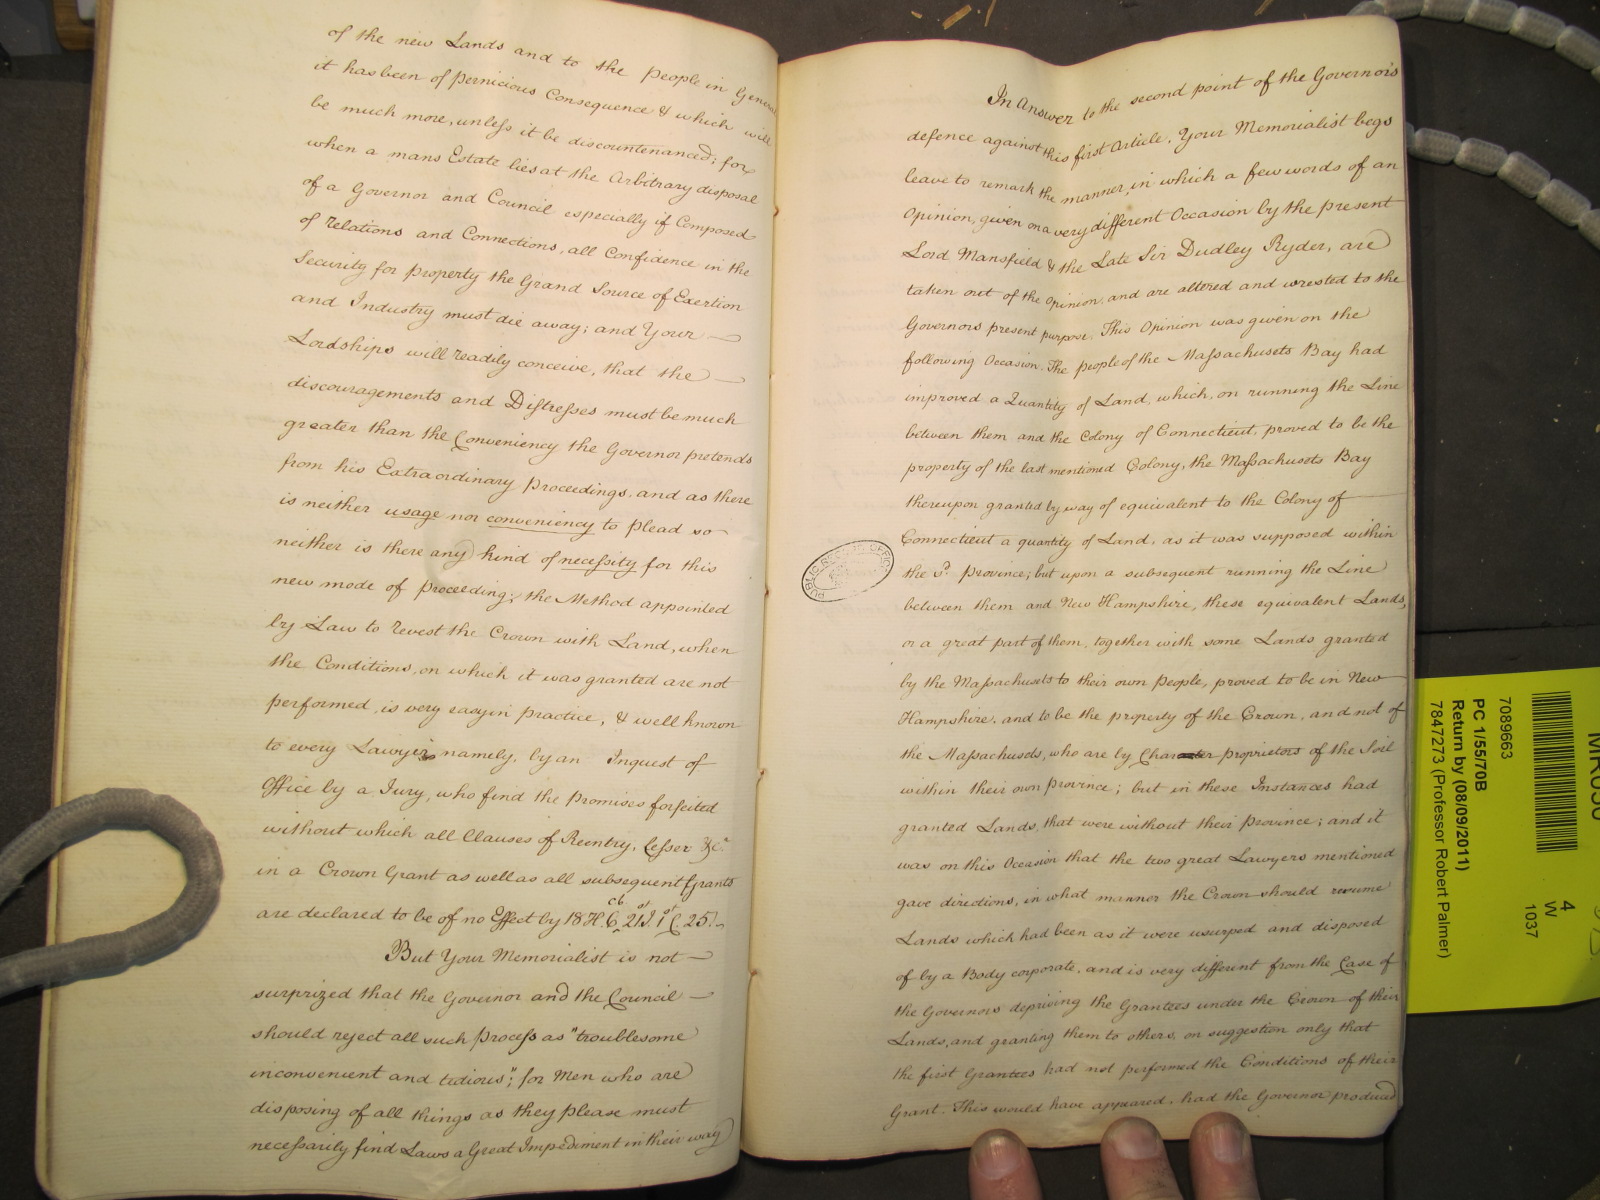 of the new Lands and to the People in General
it has been of pernicious Consequence & which will
be much more, unless it be discountenanced; for
when a mans Estate lies at the Arbitrary disposal
of a Governor and Council especially if Composed
of Relations and Connections, all Confidence in the
Security for property the Grand Source of Exertion
and Industry must die away; and Your
Lordships will readily conceive, that the
discouragements and Distresses must be much
greater than the Conveniency the Governor pretends
from his Extraordinary Proceedings, and as there
is neither usage nor conveniency to plead so
neither is there any kind of necessity for this
new mode of Proceeding; the Method appointed
by Law to revest the Crown with Land, when
the Conditions, on which it was granted are not
performed, is very easy in practice, & well known
to every Lawyer, namely, by an Inquest of
Office by a Jury, who find the Promises forfeited
without which all Clauses of Reentry, Lesser &c.
in a Crown Grant as well as all subsequent Grants
are declared to be of no Effect by 18 H. 6. c6. 21 J. 1st C. 25.
But Your Memorialist is not
surprized that the Governor and the Council
should reject all such Process as "troublesome
inconvenient and tedious"; for Men who are
disposing of all things as they please must
necessarily find Laws a Great Impediment in their way
In Answer to the second point of the Governor's
defence against this first Article, Your Memorialist begs
leave to remark the manner, in which a few words of an
Opinion, given on a very different Occasion by the present
Lord Mansfield & the Late Sir Dudley Ryder, are
taken out of the Opinion, and are altered and wrested to the
Governors present purpose. This Opinion was given on the
following Occasion. The people of the Massachusets Bay had
improved a Quantity of Land, which, on running the Line
between them and the Colony of Connecticut, proved to be the
property of the last mentioned Colony, the Massachusets Bay
thereupon granted by way of equivalent to the Colony of
Connecticut a quantity of Land, as it was supposed within
the sd. Province; but upon a subsequent running the Line
between them and New Hampshire, these equivalent Lands,
or a great part of them, together with some Lands granted
by the Massachusets to their own People, proved to be in New
Hampshire, and to be the property of the Crown, and not of
the Massachusets, who are by Charter proprietors of the Soil
within their own Province; but in these Instances had
granted Lands, that were without their Province; and it
was on this Occasion that the two great Lawyers mentioned
gave directions, in what manner the Crown should resume
Lands which had been as it were usurped and disposed
of by a Body corporate, and is very different from the Case of
the Governors depriving the Grantees under the Crown of their
Lands, and granting them to others, on suggestion only that
the first Grantees had not performed the Conditions of their
Grant. This would have appeared, had the Governor produced
PUBLIC RECORD OFFICE
7089663
PC 1/55/70B
Return by (08/09/2011)
7847273 (Professor Robert Palmer)
4
W
1037